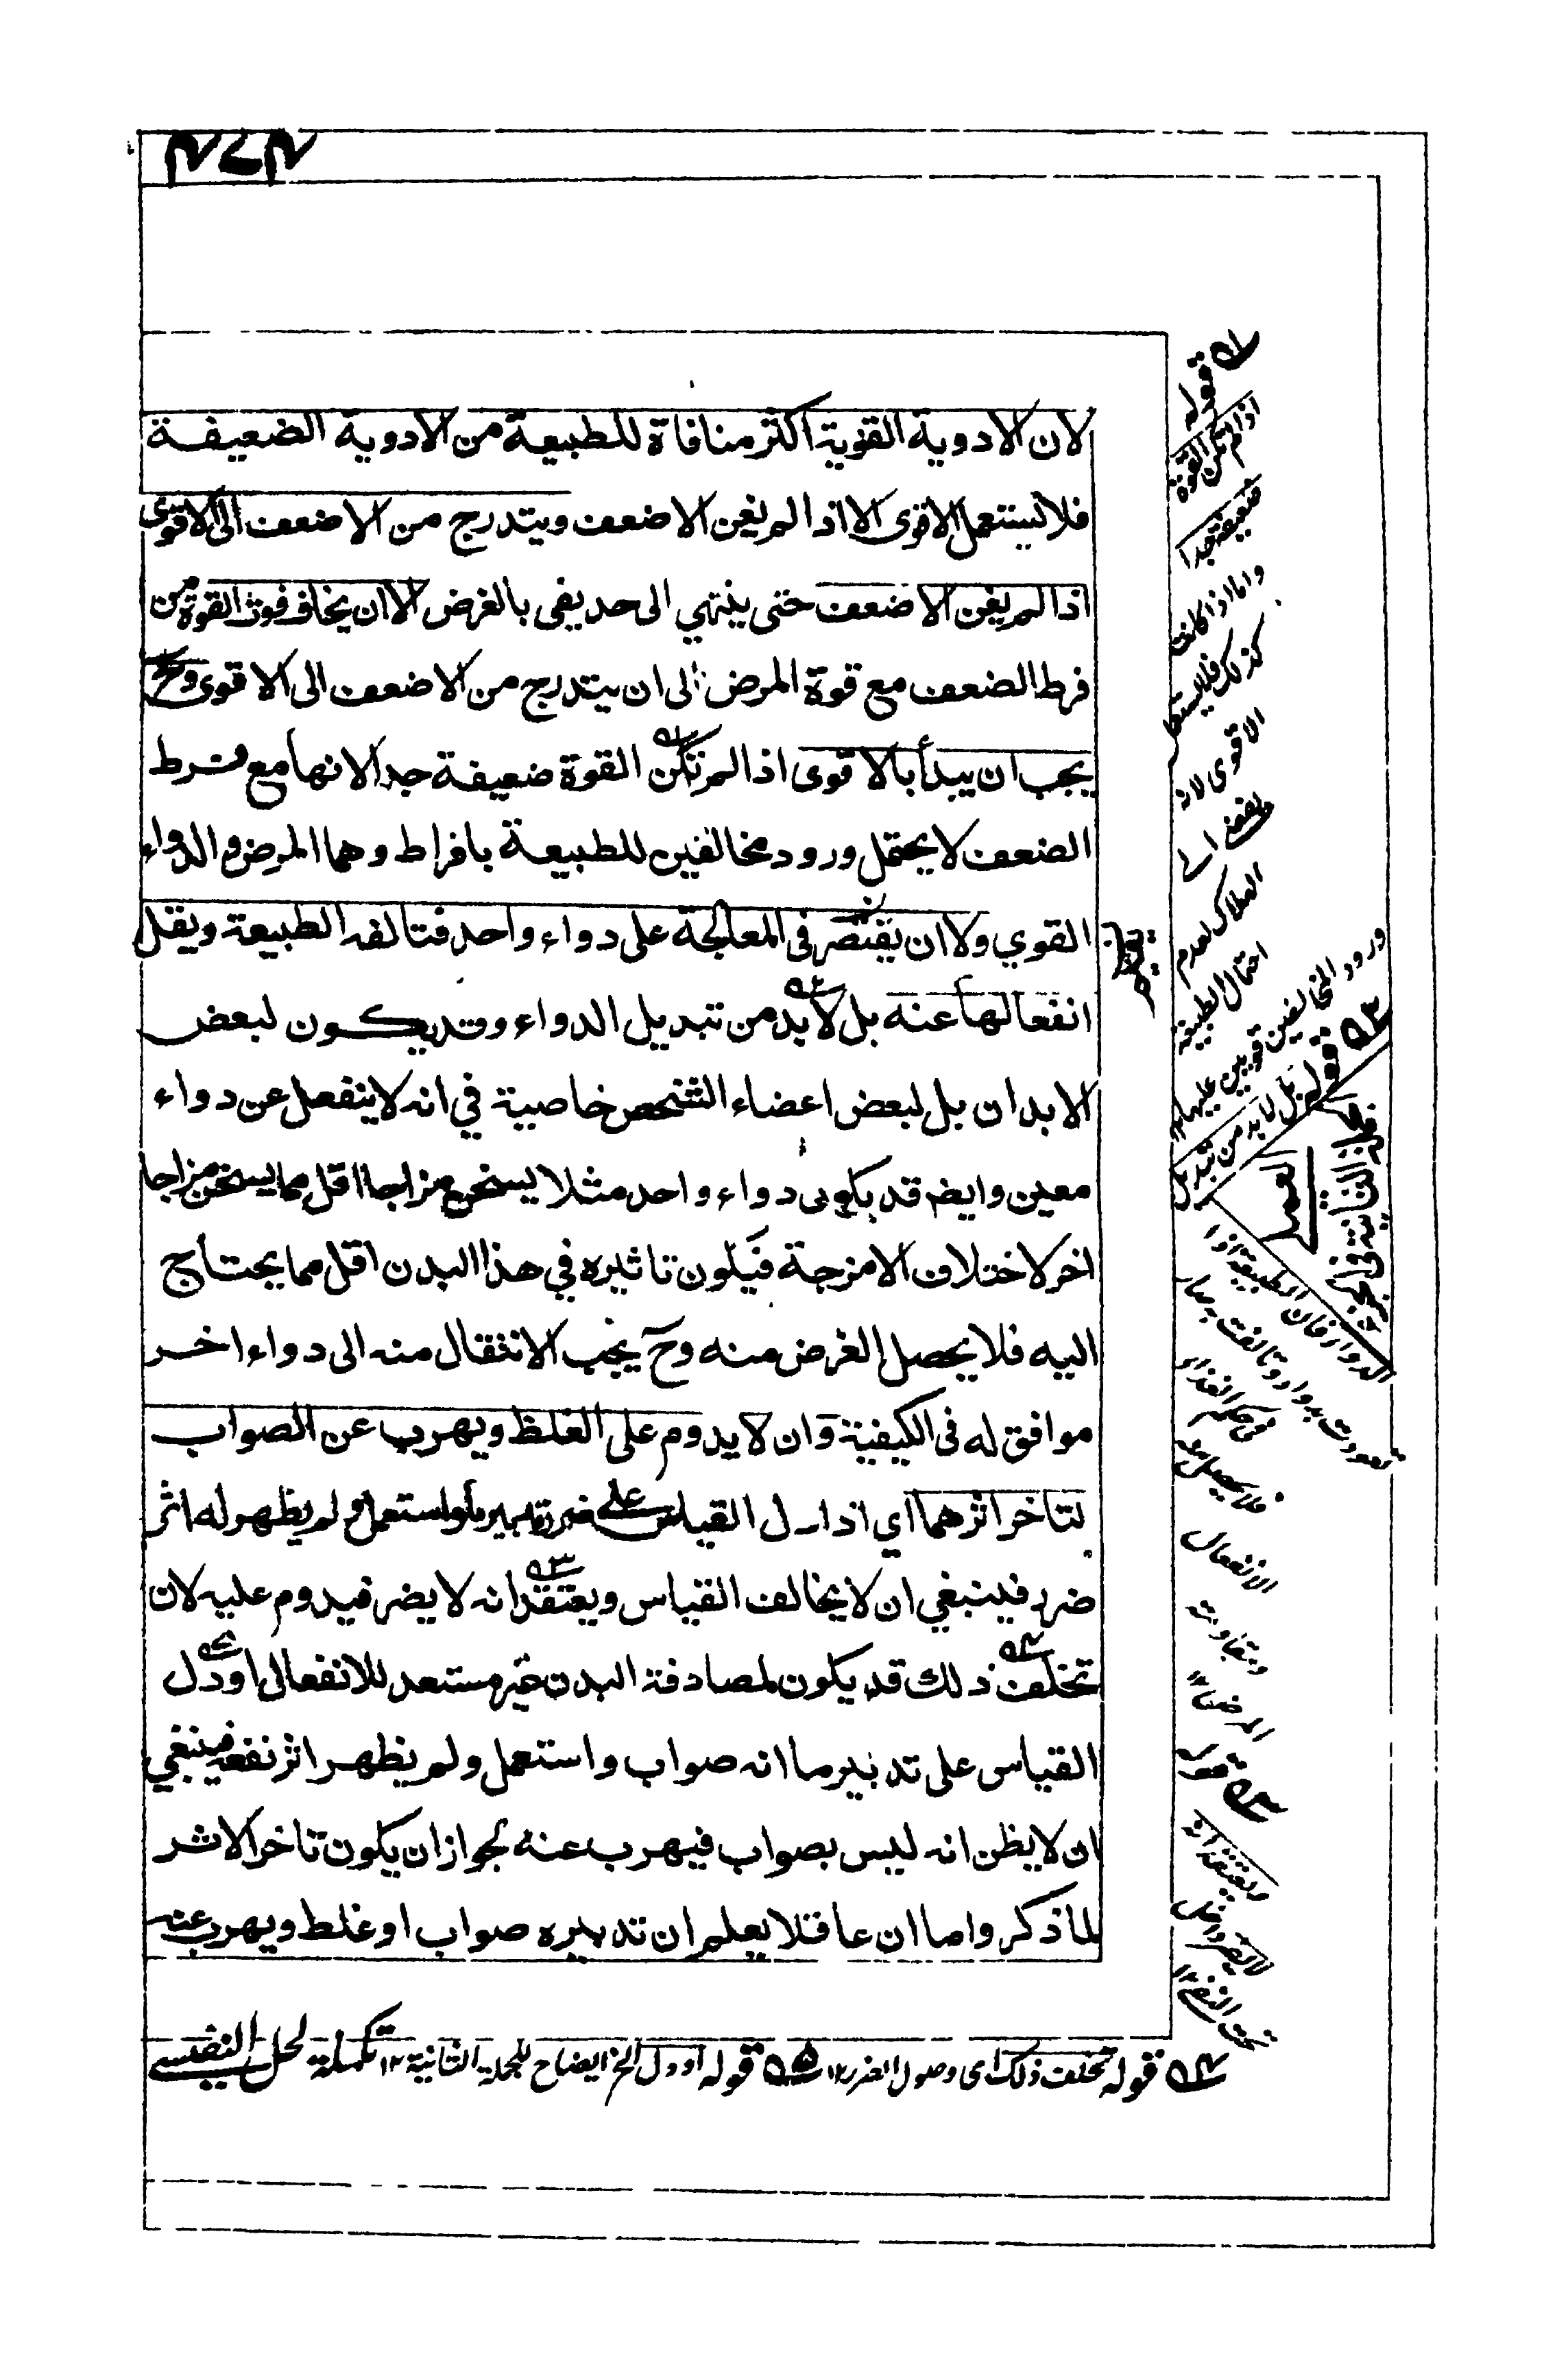 لان الادوية القوية اكثر منافاة للطبيعة من الادوية الضعيفة
فلا يستعمل الاقوى الا اذا لم يغن الاضعف ويتدرج من الاضعف الى الاقوى
اذا لم يغن الاضعف حتى ينتهي الى حد يفى بالغرض الا ان يخاف فوت القوة من
فرط الضعف مع قوة المرض الى ان يتدرج من الاضعف الى الاقوى وح
يجب ان يبدأ بالاقوى اذا لم تكن القوة ضعيفة جدا لانها مع فرط
الضعف لا يحتمل ورود مخالفين للطبيعة بافراط وهما المرض والدواء
القوي ولا ان يقتصر فى المعالجة على دواء واحد فتالفه الطبيعة ويقل
انفعالها عنه بل لا بد من تبديل الدواء وقد يكون لبعض
الابدان بل لبعض اعضاء الشخص خاصية في انه لا ينفعل عن دواء
معين وايضه قد يكون دواء واحد مثلا يسخن مزاجا اقل مما يسخن مزاجا
اخر لاختلاف الامزجة فيكون تاثيره في هذا البدن اقل مما يحتاج
اليه فلا يحصل الغرض منه وح يجب الانتقال منه الى دواء اخر
موافق له فى الكيفية وان لا يدوم على الغلظ ويهرب عن الصواب
لتاخر اثرهما اي اذا دل القياس على ضرر تدبير ما واستعمل ولم يظهر له اثر
ضرر فينبغي ان لا يخالف القياس ويعتقد انه لا يضر فيدوم عليه لان
تخلف ذلك قد يكون لمصادفة البدن غير مستعد للانفعال او دل
القياس على تدبير ما انه صواب واستعمل ولم يظهر اثر نفعه فينبغي
ان لا يظن انه ليس بصواب فيهرب عنه لجواز ان يكون تاخر الاثر
لما ذكر واما ان عاقلا يعلم ان تدبيره صواب او غلط ويهرب عنه
قوله
اذا لم تكن القوة
ضعيفة جدا
واما اذا كانت
كذلك فلا يستعمل
الاقوى لانه
يفضى الے
الهلاك لعدم
احتمال الطبيعة
ورود المخالفين قويين عليها
قوله بل لا بد من تبديل
الدواء فان الطبيعة اذا
تعودت بدواء وتالفت به صار
فى حكم الغذاء
فلا يحصل عنه
الانفعال
قوله
ويعتقد انه
لا يضر
الجملة الثانية فى الجزء
العملے
قوله تخلف ذلك اى وصول الضرر ١٢ قوله او دل الخ ايضاح للجملة الثانية ١٢ تكملة لحل النفيسے